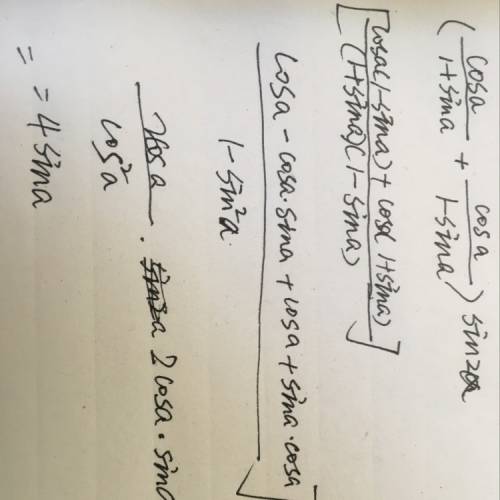 (cosa/1+sina + cosa/1-sina) sin2a
[cosa(1-sina) + cosa(1+sina)/(1+sina)(1-sina)]
cosa - cosa·sina + cosa + sina·cosa/1-sin²a]
2cosa/cos²a · 2cosa·sina
= = 4sina